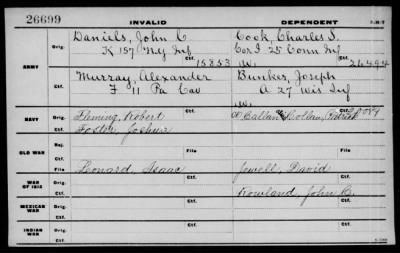 26699
INVALID
DEPENDENT
3-217
ARMY
Orig.
Daniels, John C
Cook, Charles S.
K 157 Ney Inf
Cor I 25 Conn Inf
Ctf.
15853
W.
26494
Orig.
Murray, Alexander
Bunker, Joseph
F 11 Pa Cav
A 27 Wis Inf
Ctf.
W.
NAVY
Orig.
Fleming, Robert
Callan
Patrick
Ctf.
Foster, Joshua
OLD WAR
Rej.
File
File
Ctf.
Leonard, Isaac
WAR OF 1812
Orig.
Jewell, David
Ctf.
Rowland, John C.
MEXICAN WAR
Orig.
Ctf.
INDIAN WAR
Orig.
Ctf.